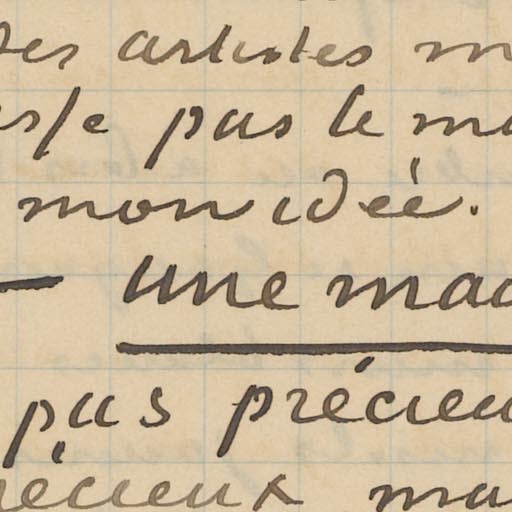 des artistes m
es/e pas le ma
mon idée.
— une mac
pas précieu
récieux ma